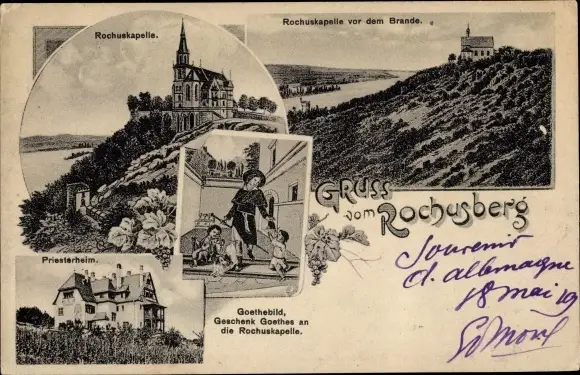 Rochuskapelle.
Rochuskapelle vor dem Brande.
Gruss
vom Rochusberg
Priesterheim.
Goethebild,
Geschenk Goethes an
die Rochuskapelle.
Souvenir
d. allemagne
18 mai 19